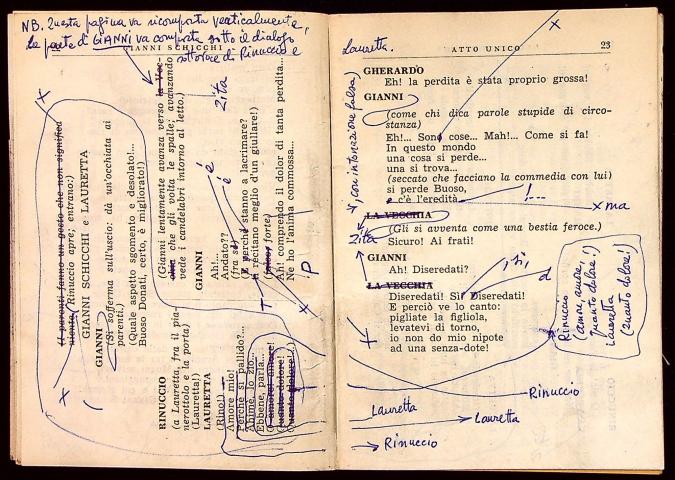 NB. Questa pagina va ricomposta verticalmente,
la parte di GIANNI va composta sotto il dialogo
GIANNI SCHICCHI
sottovoce di Rinuccio e
(I parenti fanno un gesto che non significa
niente; Rinuccio apre; entrano:)
GIANNI SCHICCHI e LAURETTA
GIANNI
(Si sofferma sull'uscio: dà un'occhiata ai
parenti.)
(Quale aspetto sgomento e desolato!...
Buoso Donati, certo, è migliorato!)
RINUCCIO
(a Lauretta, fra il pia-
nerottolo e la porta)
(Lauretta!)
LAURETTA
(Rino!)
Amore mio!
Perché sì pallido?...
Ahimè, lo zio...
Ebbene, parla...
(Gianni lentamente avanza verso la Vec-
chia che gli volta le spalle; avanzando
vede i candelabri intorno al letto.)
Zita
GIANNI
Ah!...
Andato??
(fra sé)
(E perché stanno a lacrimare?
ti recitano meglio d'un giullare!)
forte)
Ah! comprendo il dolor di tanta perdita...
Ne ho l'anima commossa...
è
é
T
P
x
Amore! amore!
Quanto dolore!
Quanto dolore!
Lauretta.
ATTO UNICO
23
GHERARDO
Eh! la perdita è stata proprio grossa!
GIANNI
(come chi dica parole stupide di circo-
stanza)
Eh!... Sono cose... Mah!... Come si fa!
In questo mondo
una cosa si perde...
una si trova...
(seccato che facciano la commedia con lui)
si perde Buoso,
e c'è l'eredità...
!...
x ma
con intonazione falsa)
LA VECCHIA
(Gli si avventa come una bestia feroce.)
Zita
Sicuro! Ai frati!
GIANNI
Ah! Diseredati?
, sì,
d
LA VECCHIA
Diseredati! Sì! Diseredati!
E perciò ve lo canto:
pigliate la figliola,
levatevi di torno,
io non do mio nipote
ad una senza-dote!
Rinuccio
(amor, amore,
quanto dolore!)
Lauretta
(Quanto dolore!)
Rinuccio
Lauretta
Lauretta
Rinuccio